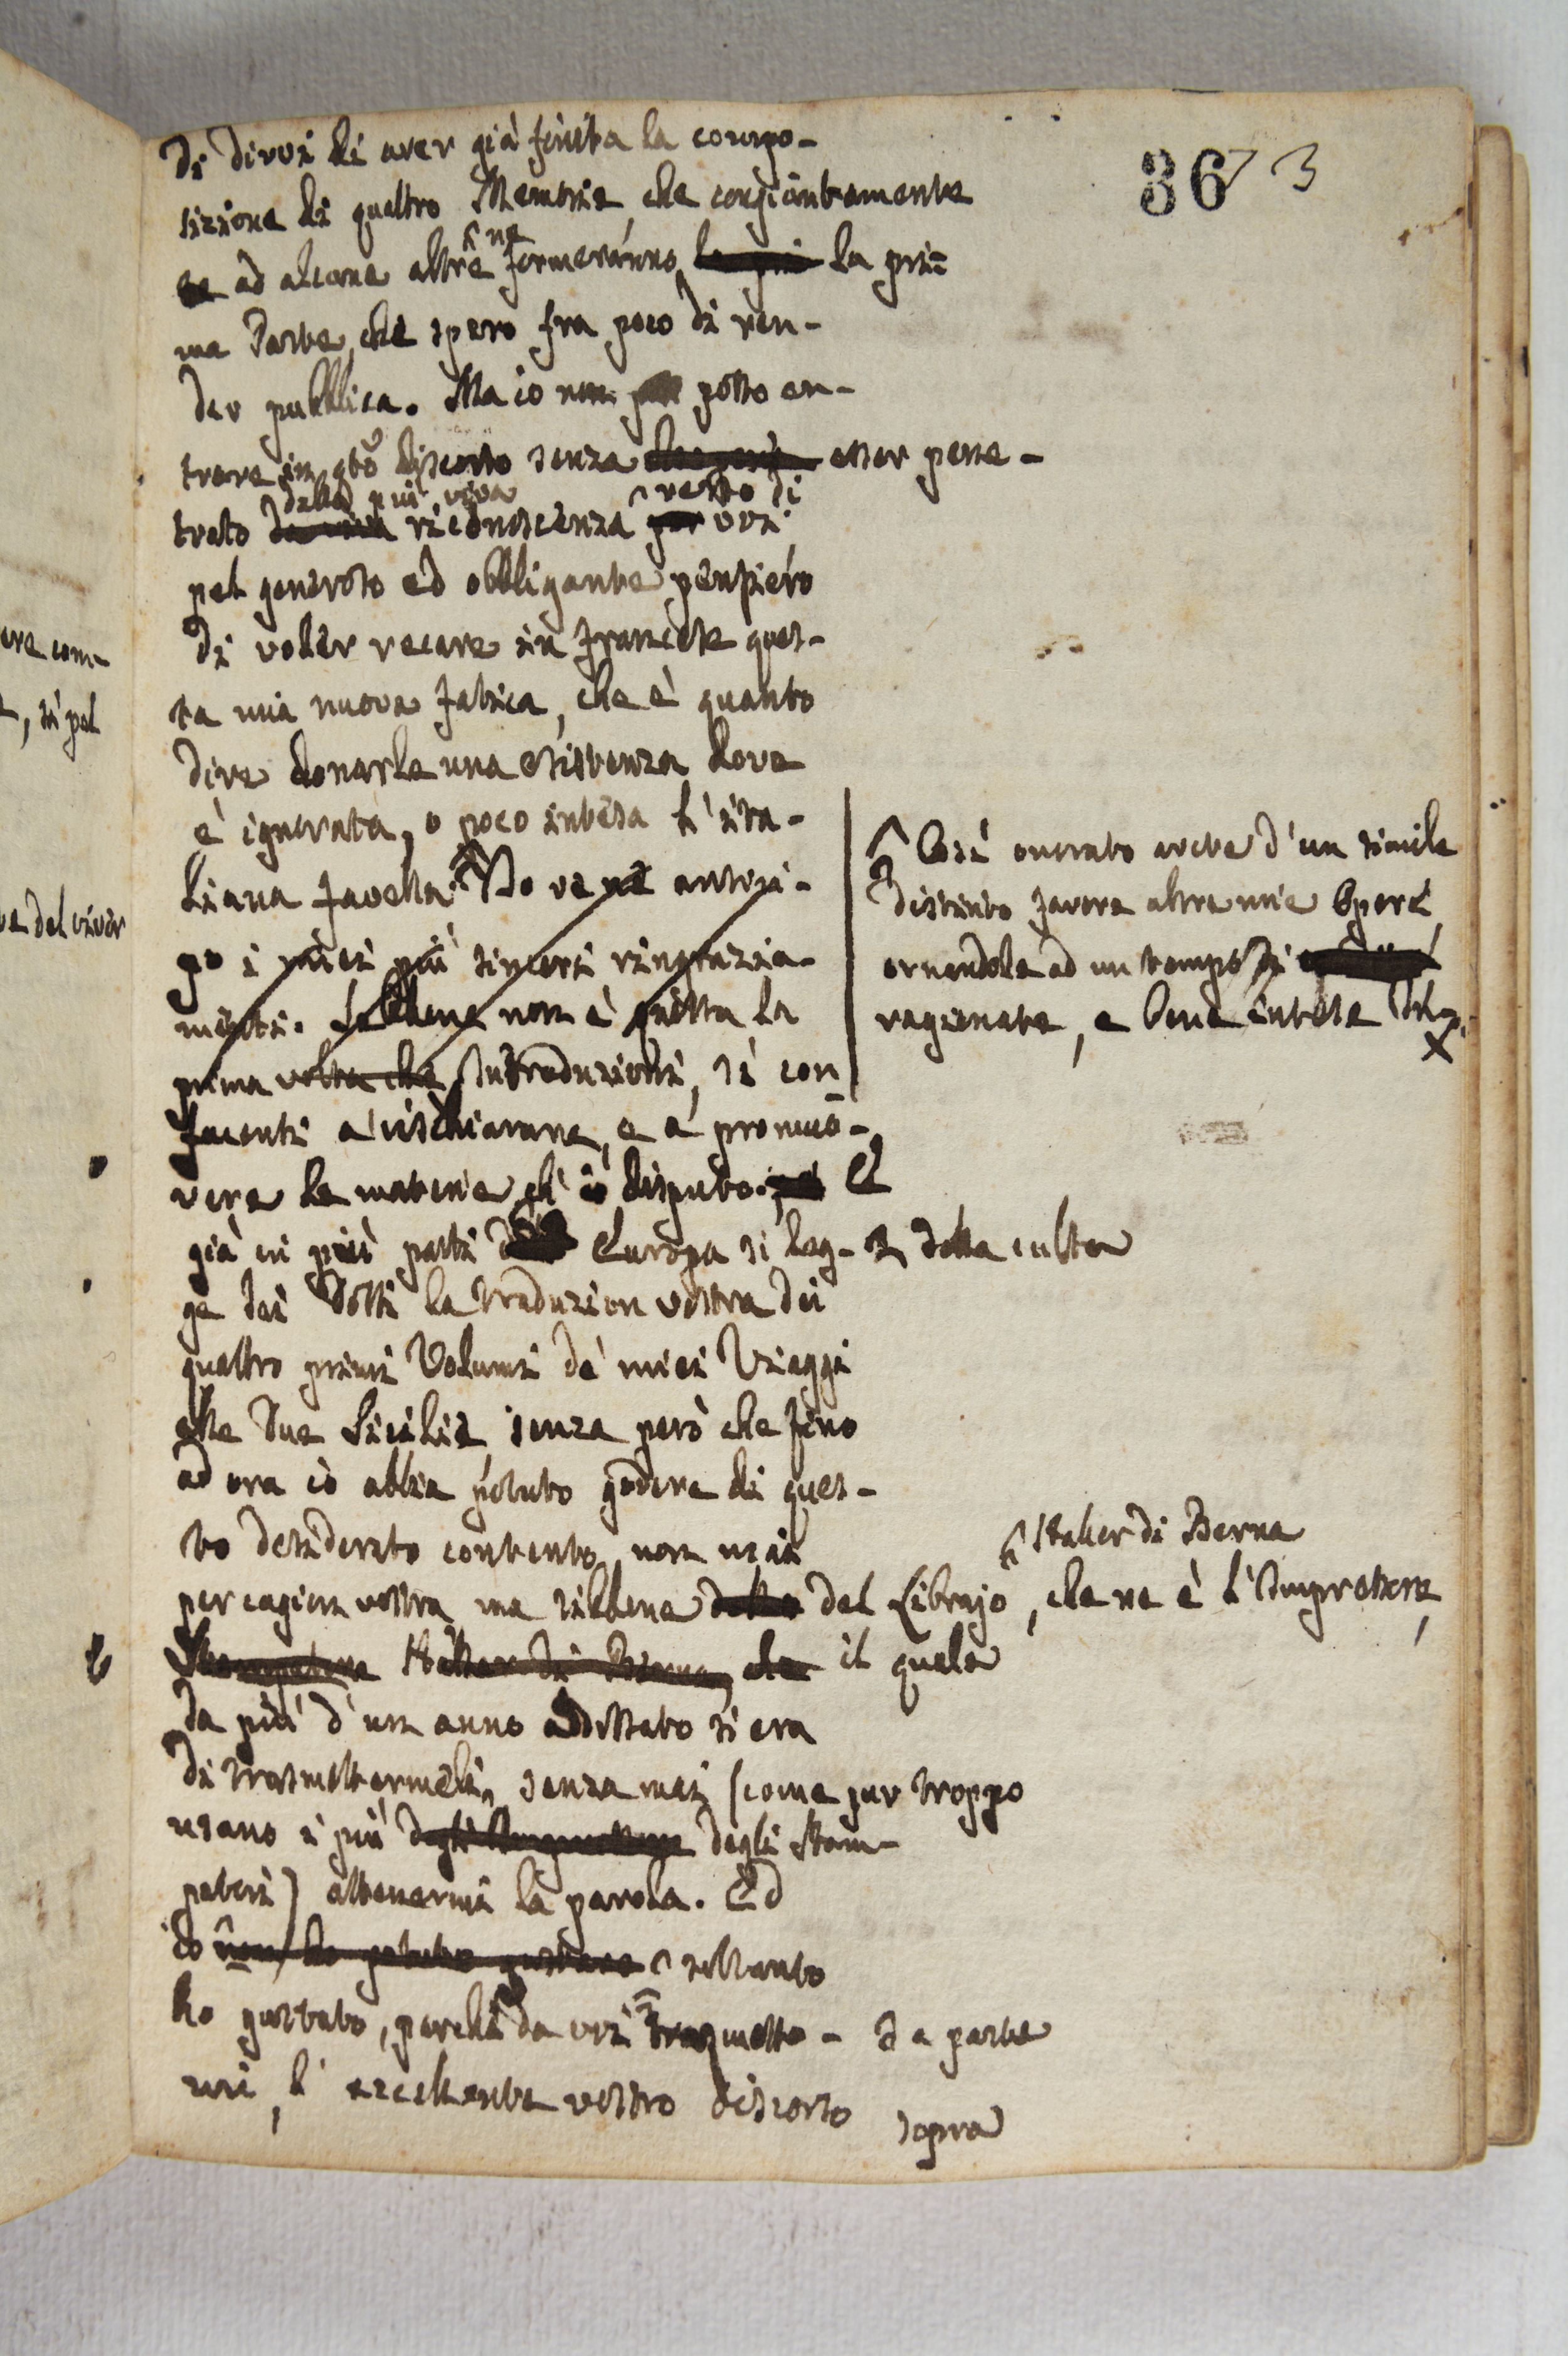 36 3
di dirvi di aver già finita la compo-
sizione di quattro Memorie, che congiuntamente
ad alcune altre ^ne formeranno la pri=
ma Parte, che spero fra poco di ren-
der pubblica. Ma io non posso en-
trare in qto discorso senza esser pene-
dalla più viva ^verso di
trato riconoscenza per voi
pel generoso ed obbligante pensiero
di voler recare in francese ques-
ta mia nuova fatica, che è quanto
dire donarle una esistenza dove
è ignorata, o poco intesa l'ita-
liana favella. Ve ne antici-
po i miei più sinceri ringrazia-
menti. Sebbene non è questa la
prima volta che Introduzioni, sì con
facenti a rischiarare, e a promuo-
vere le materie ch'io disputo. E
già in più parti Europa si leg-
ge dai Dotti la traduzion vostra dei
quattro primi Volumi de' miei Viaggi
alle due Sicilie, senza però che fino
ad ora io abbia potuto godere di ques-
to desiderato contento, non mai
per cagion vostra ma sibbene del Librajo ^, che ne è l'Impressore,
Haller di Berna, che il quale
da più d'un anno addossato si era
di trasmettermeli, senza mai (come pur troppo
usano i più degli Stam-
patori) attenermi la parola. Ed
io non ho potuto gustare ^ soltanto
ho gustato, perchè da voi trasmesso-
mi, l'eccellente vostro discorso
^ Così onorato avete d'un simile
distinto favore altre mie Opere,
ornandole ad un tempo di
ragionate, e bene intese
X
della culta
^ Haller di Berna
da parte
sopra
ere com-
, sì pel
del viver